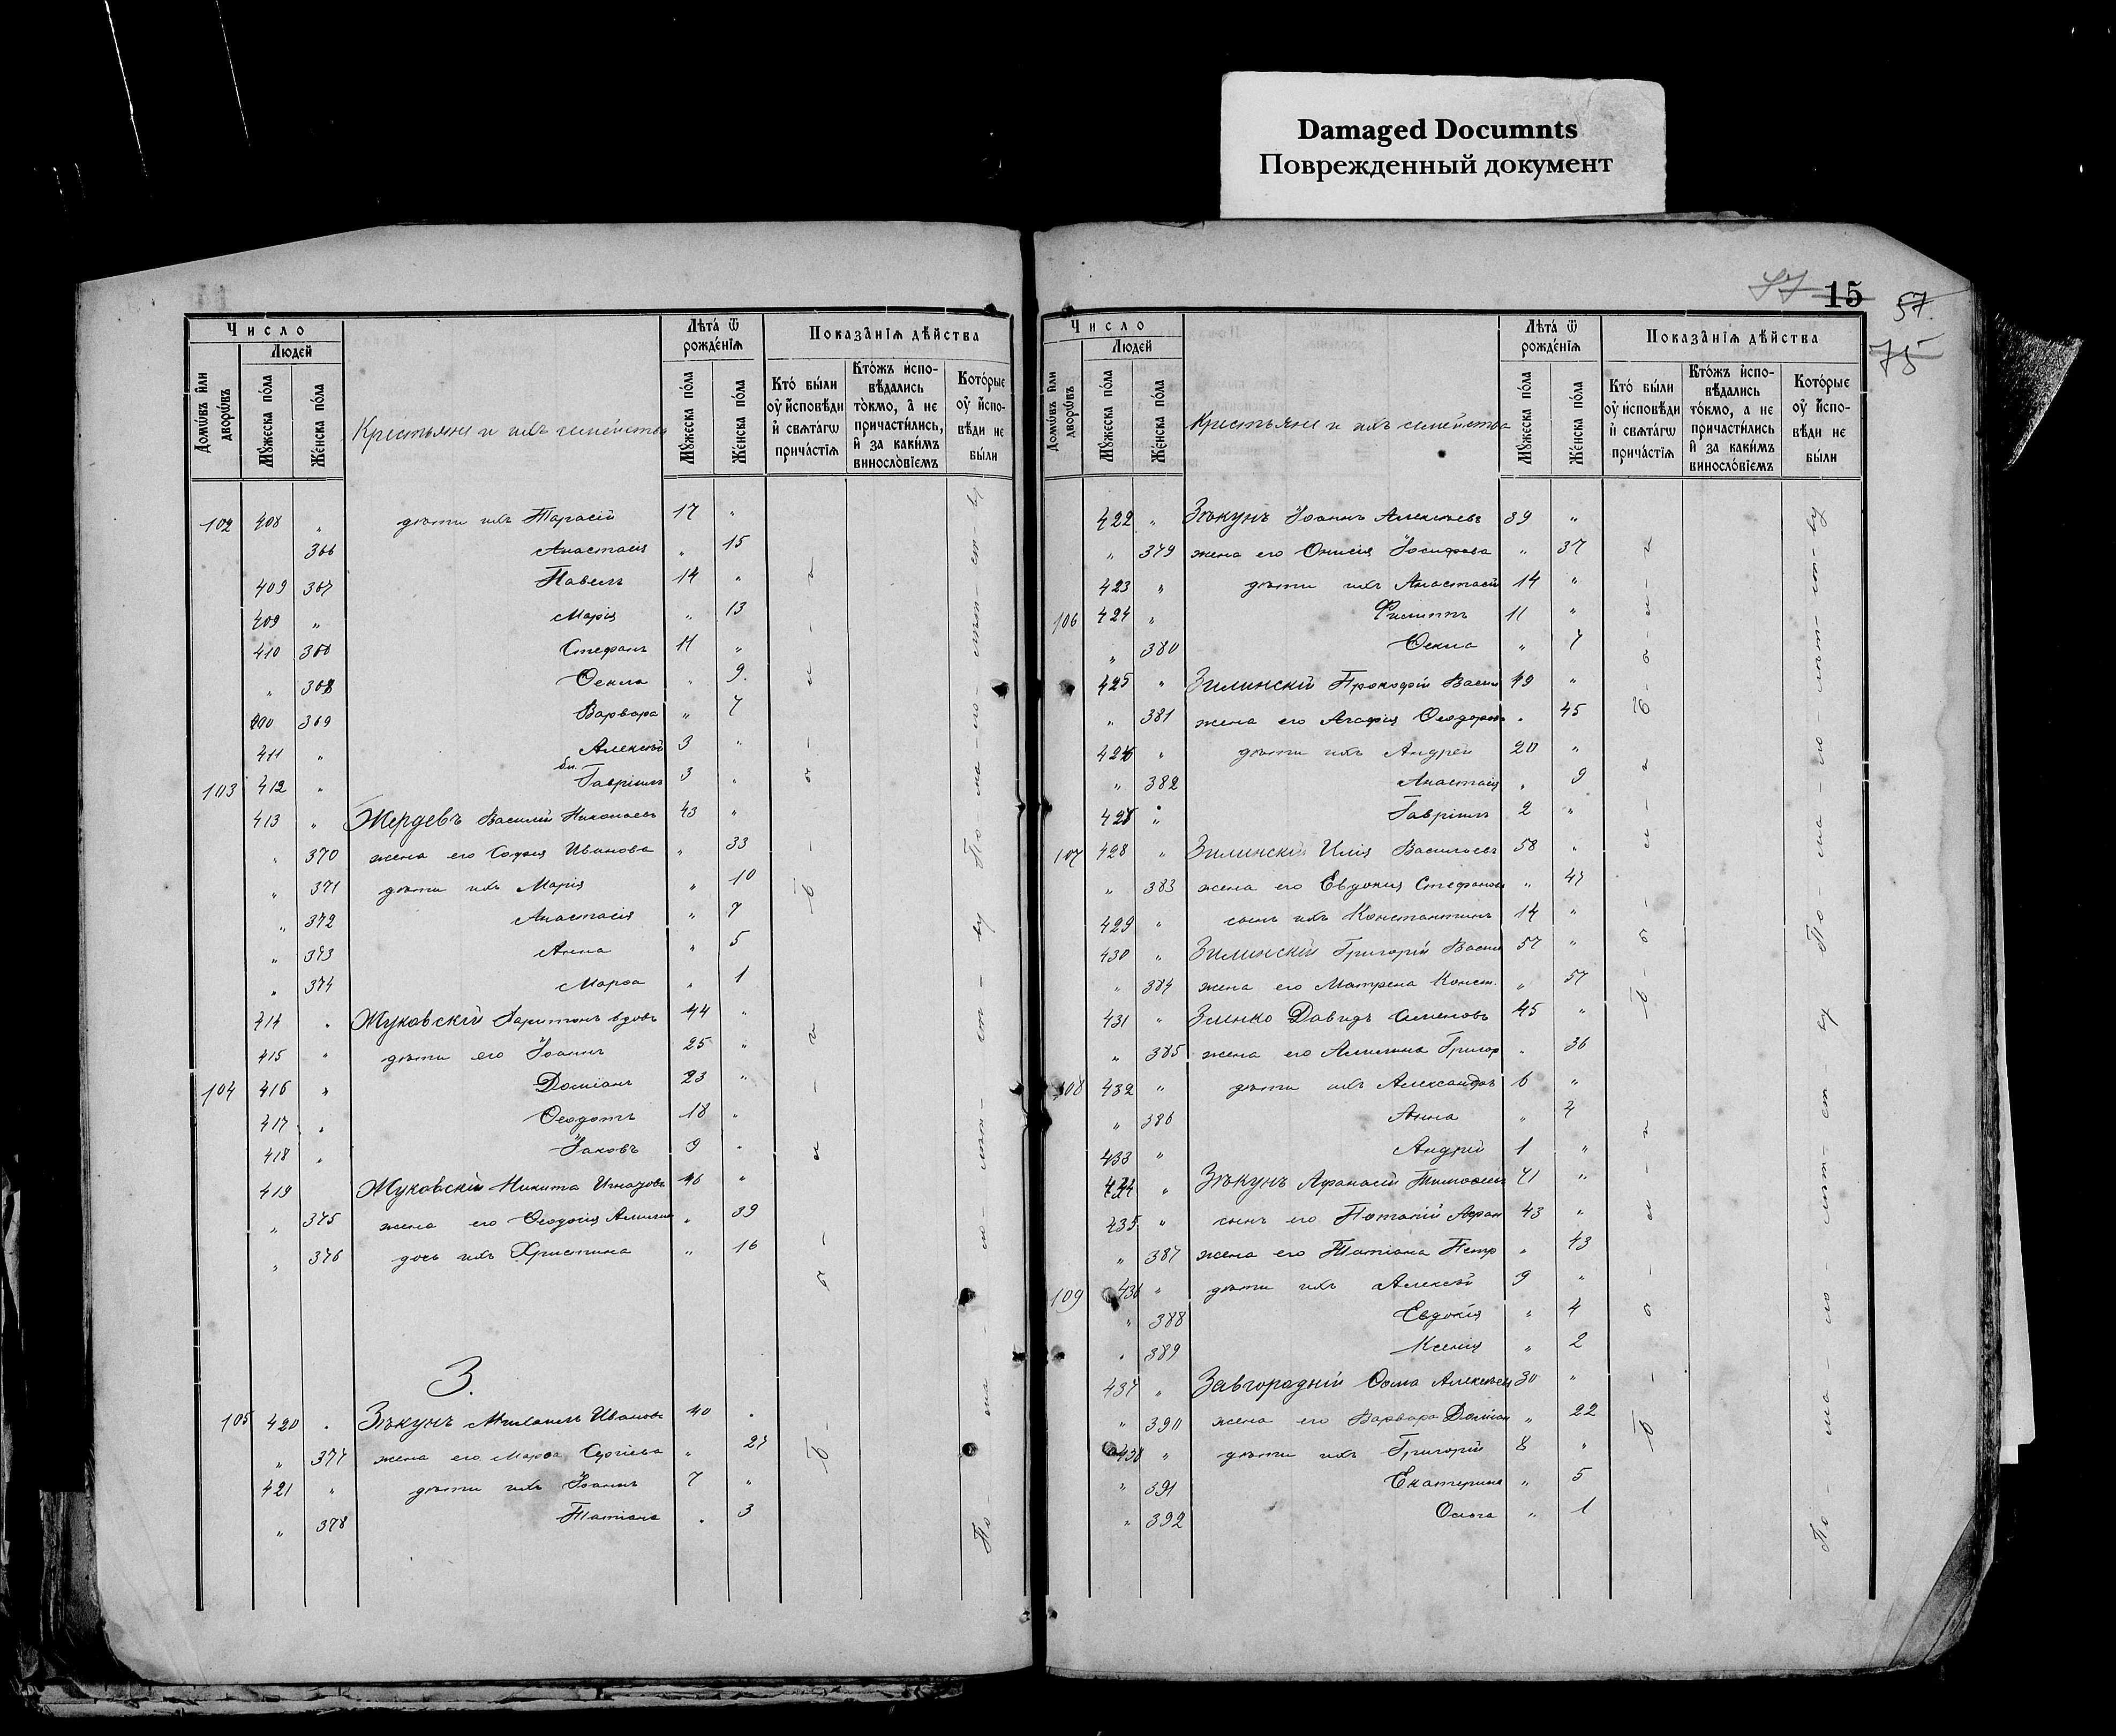 Damaged Documnts
Поврежденный документ
15
57.
75
Число
Людей
Домѡвъ и҆лѝ дворѡвъ
Мꙋжеска по́ла
Же́нска по́ла
Крестьяне и ихъ семейства
Лѣта̀ ѿ рожде́нїѧ
Мꙋжеска по́ла
Же́нска по́ла
Показа̑нїѧ дѣ́йства
Кто̀ бы́ли оу҆ и҆сповѣди и҆ свѧта́гѡ прича́стїѧ
Кто́жъ и҆спо-вѣдались то́кмо, а҆ не причасти́лись, и҆ за каки́мъ винословїемъ
Кото́рые оу҆ и҆спо-вѣди не бы́ли
102 408 " дѣти ихъ Тарасій 17 "
366 Анастасія " 15
409 367 Павелъ 14 "
409 " Марія " 13
410 Стефанъ 11 "
" 368 Ѳекла " 9.
369 Варвара " 7
411 " Алексѣй 3 "
бл.
103 412 " Гавріилъ 3 "
413 " Жердевъ Василій Николаевъ 43 "
" 370 жена его Софія Иванова " 33
" 371 дѣти ихъ Марія " 10
" 372 Анастасія " 7
" 373 Анна " 5
" 374 Марѳа " 1
414 " Жуковскій Харитонъ вдовъ 44 "
415 " дѣти его Іоаннъ 25 "
104 416 " Доміанъ 23 "
417 " Ѳеодотъ 18 "
418 " Іаковъ 9 "
419 Жуковскій Никита Игнатовъ 46 "
" 375 жена его Ѳеодосія " 39
" 376 дочь ихъ Христина " 16
З.
105 420 " Зѣкунъ Михаилъ Ивановъ 40 "
" 377 жена его Марѳа Сергіева " 27
421 " дѣти ихъ Іоаннъ 7 "
" 378 Татіана " 3
Число
Людей
Домѡвъ и҆лѝ дворѡвъ
Мꙋжеска по́ла
Же́нска по́ла
Крестьяне и ихъ семейства
Лѣта̀ ѿ рожде́нїѧ
Мꙋжеска по́ла
Же́нска по́ла
Показа̑нїѧ дѣ́йства
Кто̀ бы́ли оу҆ и҆сповѣди и҆ свѧта́гѡ прича́стїѧ
Кто́жъ и҆спо-вѣдались то́кмо, а не причасти́лись и҆ за каки́мъ винословїемъ
Кото́рые оу҆ и҆спо-вѣди не бы́ли
422 " Зѣкунъ Іоаннъ Алексѣевъ 39 "
" 379 жена его Онисія Іосифова " 37
423 " дѣти ихъ Анастасій 14 "
106 424 " Филиппъ 11 "
" 380 Ѳекла " 7
425 " Зилинскій Прокофій Васил 49 "
" 381 жена его Агафія Ѳеодоров " 45
426 " дѣти ихъ Андрей 20 "
" 382 Анастасія " 9
" Гавріилъ 2 "
107 428 " Зилинскій Илія Васильевъ 58 "
" 383 жена его Евдокія Стефанов " 47
429 " сынъ ихъ Константинъ 14 "
430 " Зилинскій Григорій Васил 57 "
" 384 жена его Матрена Конст. " 57
431 " Зинко Давидъ Семеновъ 45 "
" 385 жена его Григор " 36
108 432 " дѣти ихъ Александръ 6 "
" 386 Анна " 4
433 " Андрій 1 "
434 " Зѣкунъ Афанасій Тимоѳеевъ 71 "
435 " сынъ его Потапій Афан 43 "
" 387 жена его Татіана Петр " 43
109 436 " дѣти ихъ Алексѣй 9 "
" 388 Евдокія " 4
" 389 Ксенія " 2
437 " Завгородній Ѳома Алексѣев 30 "
" 390 жена его Варвара Доміан " 22
438 " дѣти ихъ Григорій 8 "
" 391 Екатерина " 5
" 392 Ольга " 1